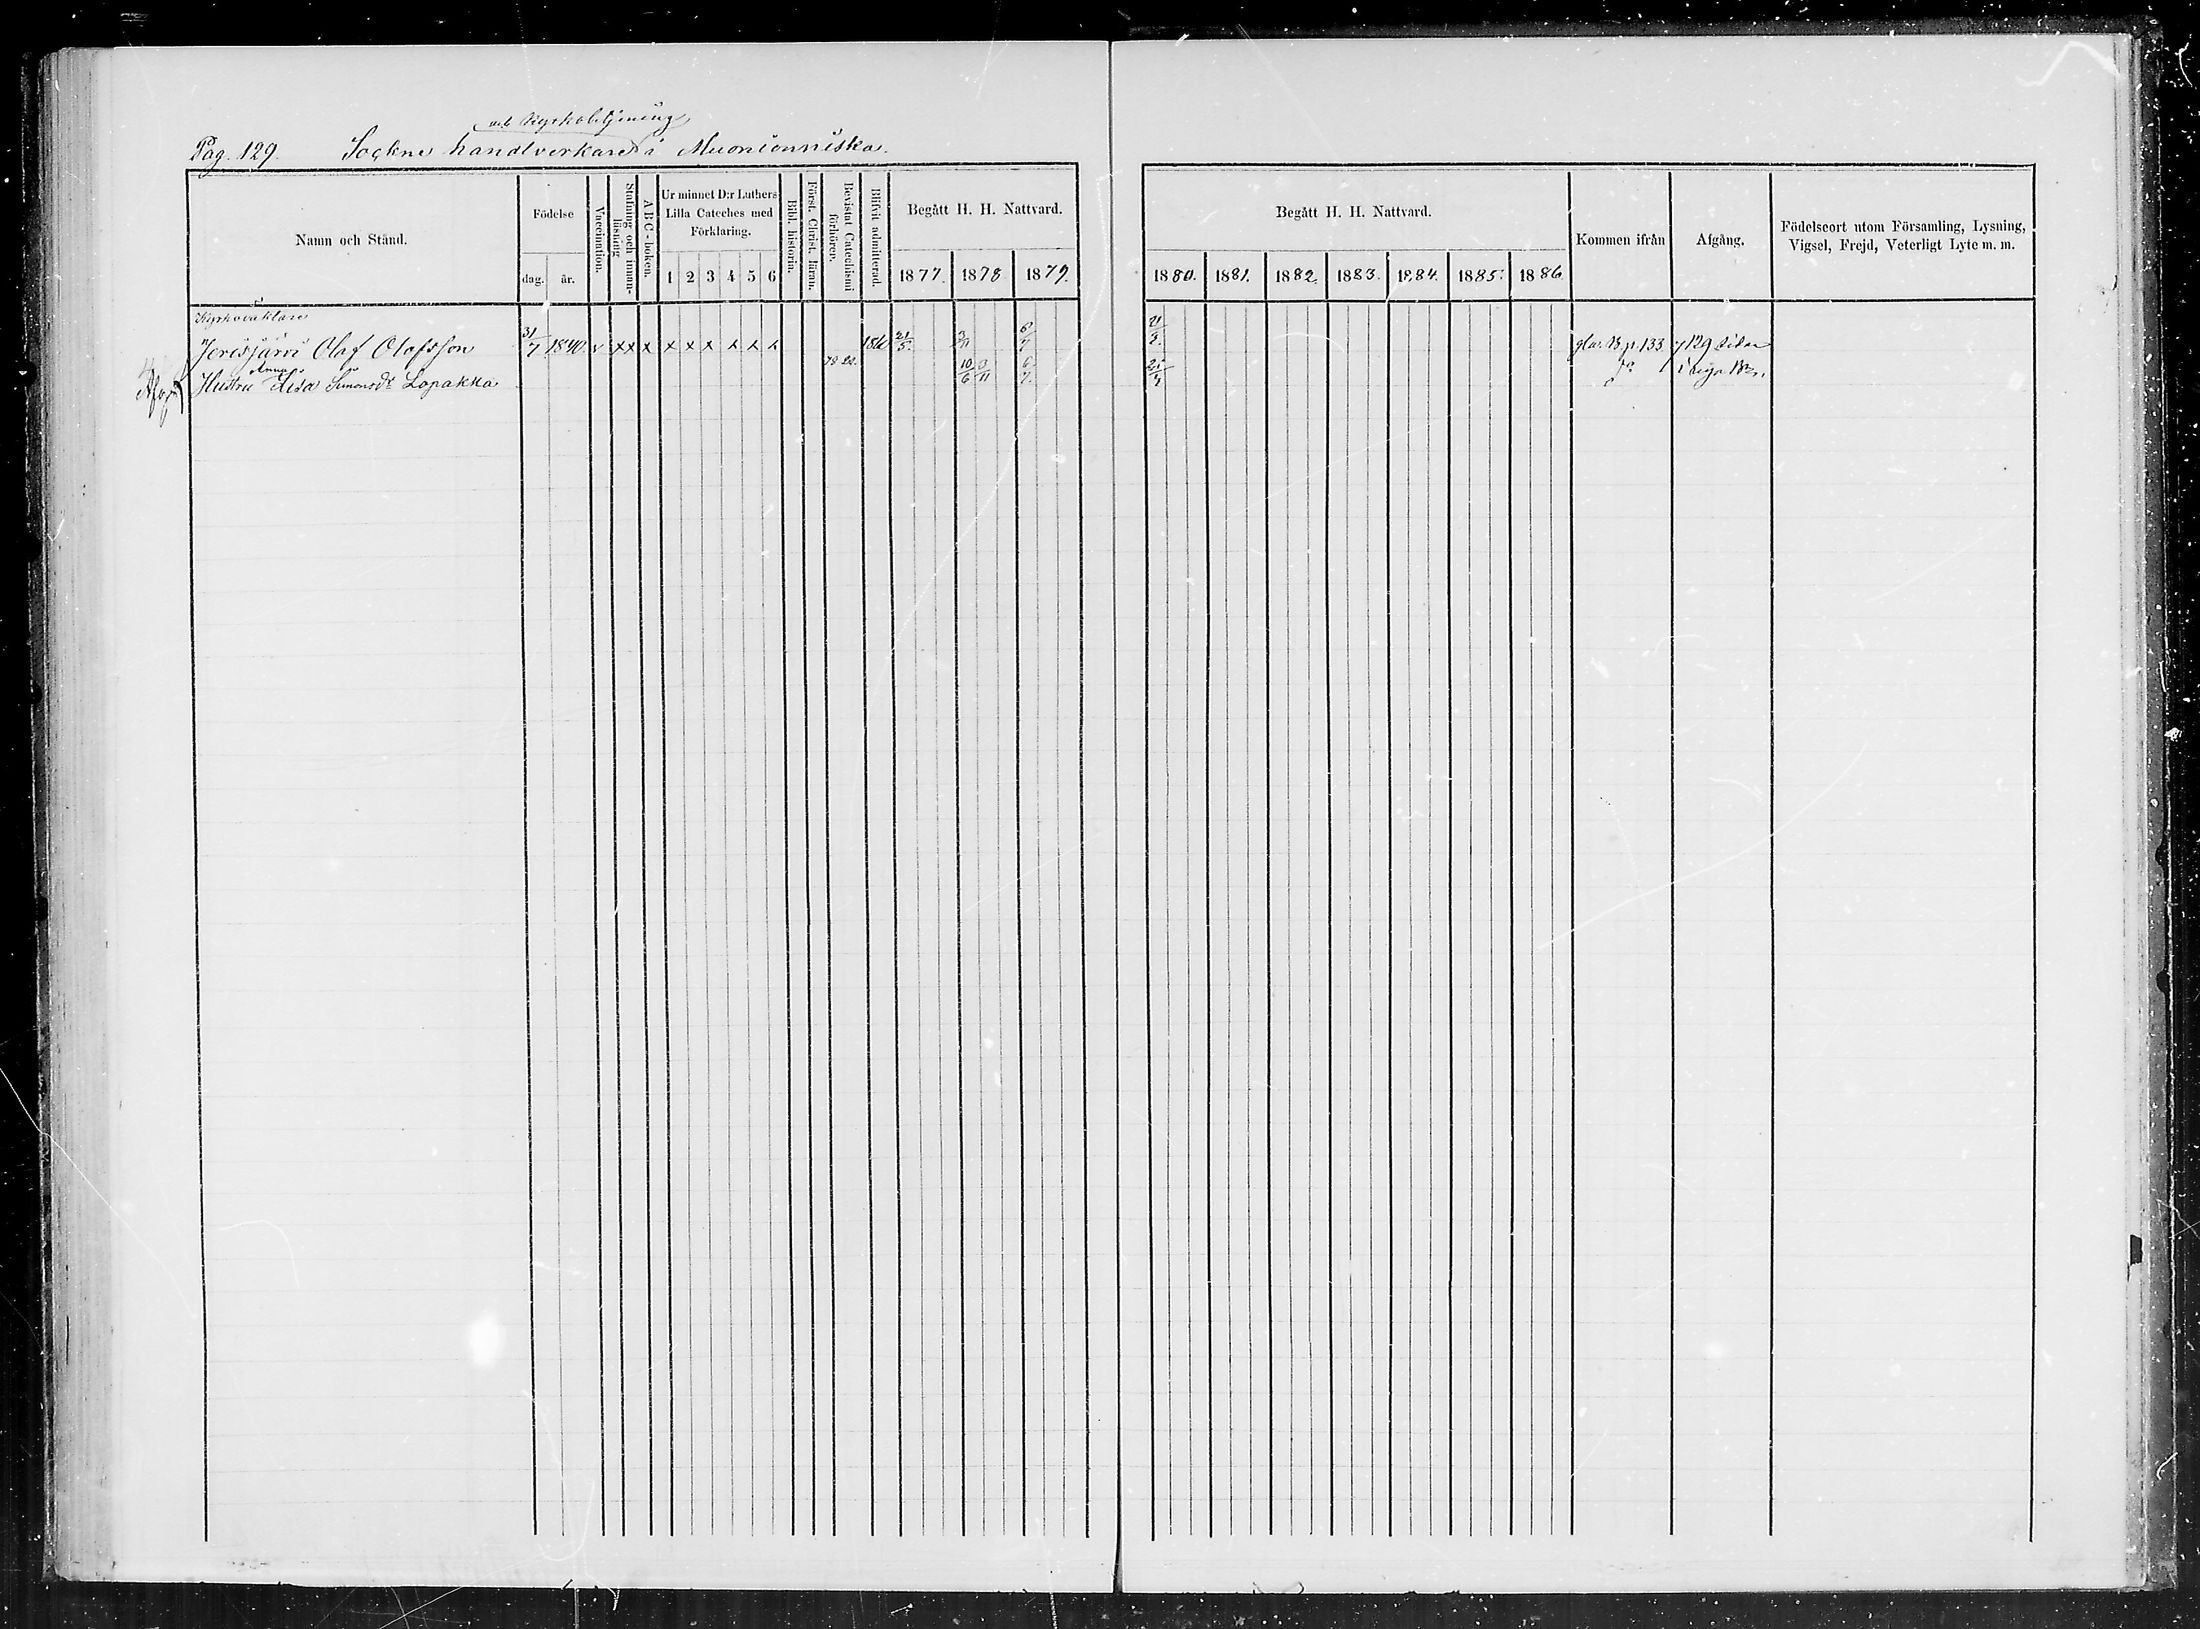 och Kyrkobetjening
Pag. 129. Sockne handtverkare i Muonionniska.
Namn och Stånd.
Födelse
dag. år.
Vaccination.
Stafning och innan-
läsning
A B C - boken.
Ur minnet D:r Luthers
Lilla Cateches med
Förklaring.
1 2 3 4 5 6
Bibl. historia.
Först. Christ. läran.
Bevistat Catechismi
förhören.
Blifvit admitterad.
Begått H. H. Nattvard.
1877. 1878 1879.
Begått H. H. Nattvard.
1880. 1881. 1882. 1883. 1884. 1885. 1886.
Kommen ifrån
Afgång.
Födelseort utom Församling, Lysning,
Vigsel, Frejd, Veterligt Lyte m. m.
Kyrkovaktare
Jerisjärvi Olaf Olofsson 31/7 1840. v x x x x x x x x x 21/5. 3/11 6/7 21/3. gla. B. p. 133 p 129 sidan
Anna
Hustru Lisa Simonsdr Lopakka 78 22. 10/6 3/11 6/7. 21/3 do i nya Bn.